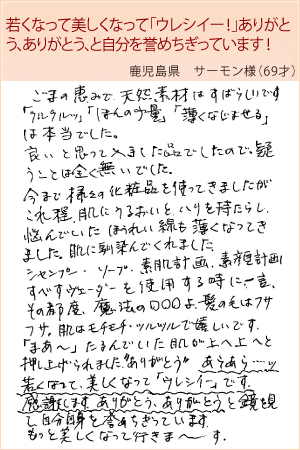 若くなって美しくなって「ウレシイー！」ありがと
う、ありがとう、と自分を誉めちぎっています！
鹿児島県　サーモン様（69才）
ごまの恵みで、天然素材はすばらしいです
「クルクルッ」「ほんの少量」「薄くなじませる」
は本当でした。
良いと思って入ました品でしたので、疑
うことは全く無いでした。
今まで様々の化粧品を使ってきましたが
これ程、肌にうるおいと、ハリを持たらし、
悩んでいた ほうれい線も薄くなってき
ました。肌に馴染んでくれました。
シャンプー・ソープ、素肌計画、素顔計画
すべすヴェーダーを使用する時に一言、
その都度、魔法の口〇〇よ、髪の毛はフサ
フサ。肌はモチモチ・ツルツルで嬉しいです。
「まあ〜」たるんでいた肌が上へ上へと
押し上げられました。"ありがとう" あらあら‥‥ッ
若くなって、美しくなって「ウレシイー」です。
感謝します ありがとう、ありがとうと鏡を見
て自分自身を誉めちぎっています。
もっと美しくなって行きま〜す。